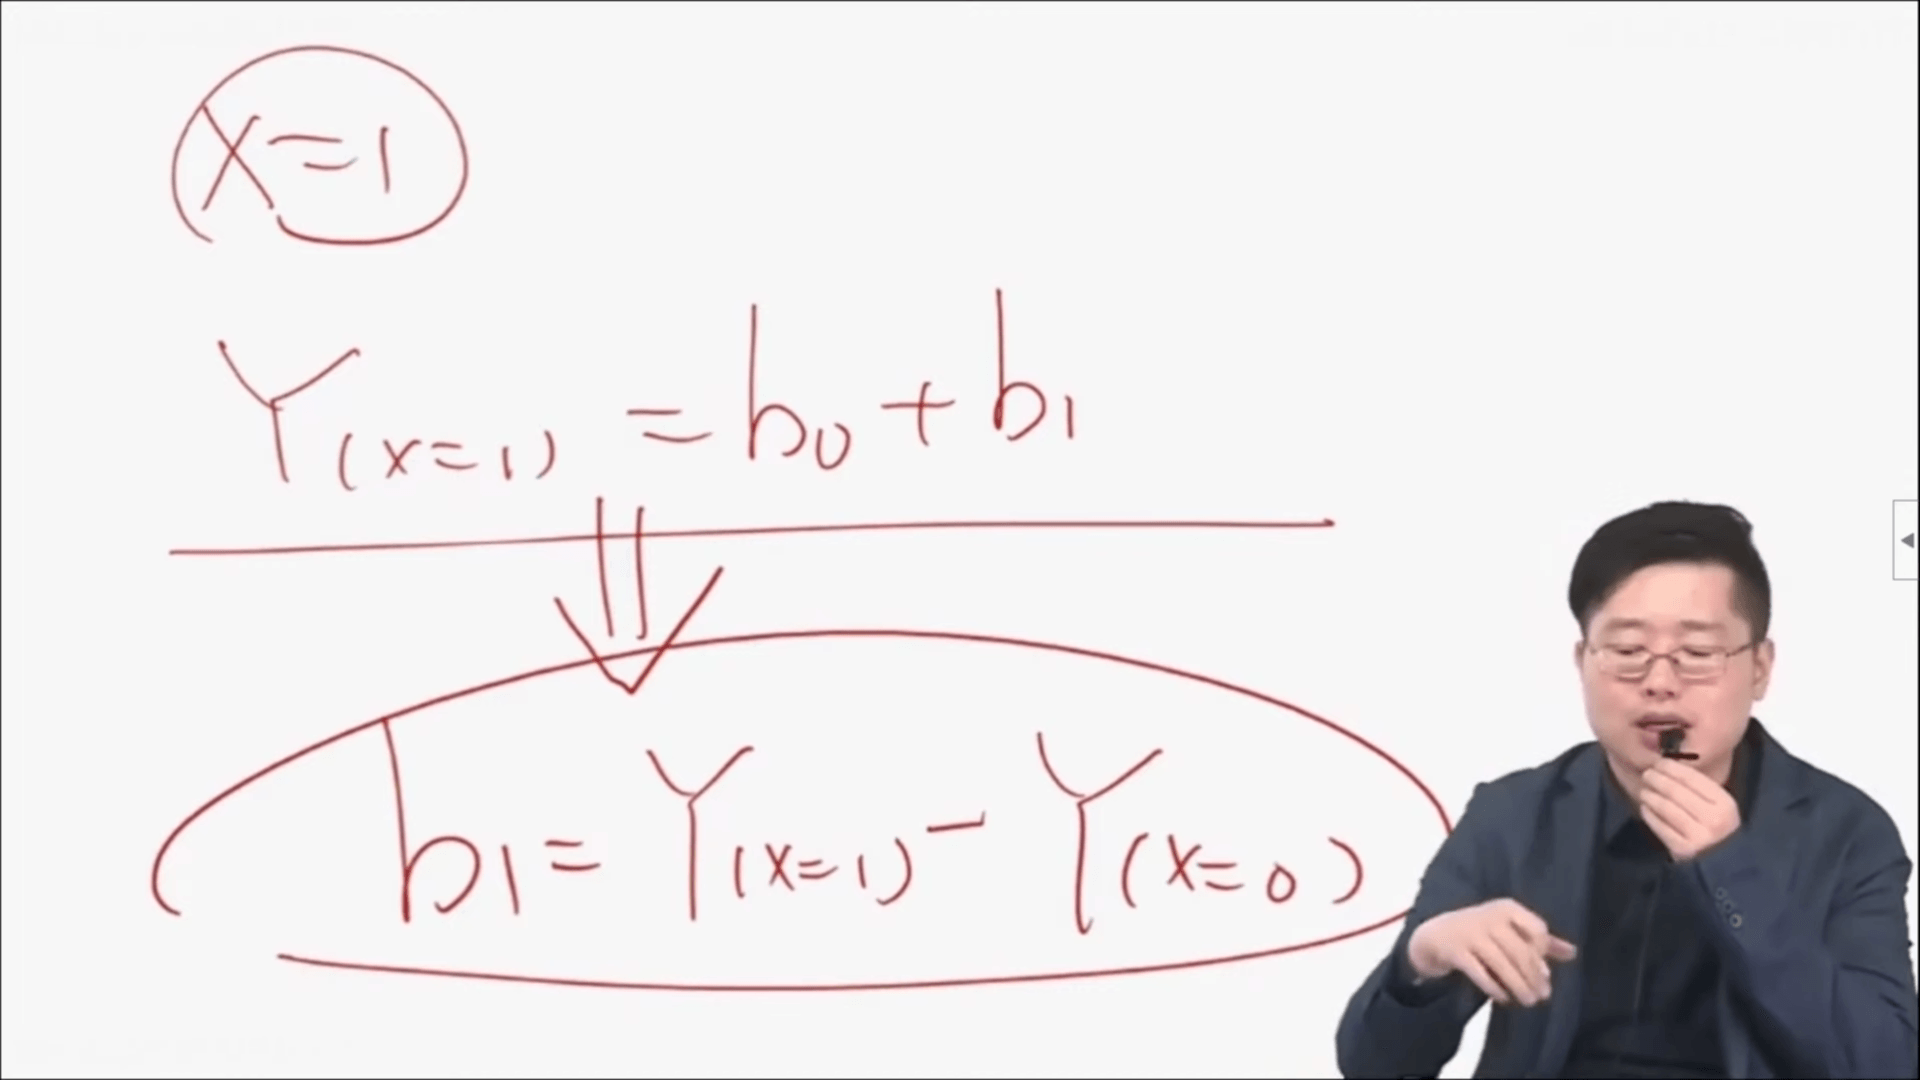 X=1
Y(x=1) = b0 + b1
b1 = Y(x=1) - Y(x=0)